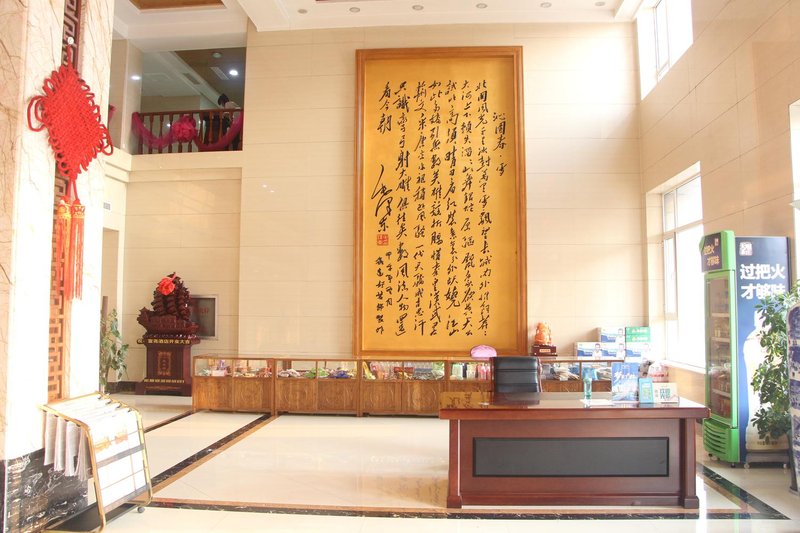 沁园春·雪
北国风光千里冰封万里雪飘望长城内外惟馀莽莽
大河上下顿失滔滔山舞银蛇原驰蜡象欲与天公
试比高须晴日看红装素裹分外妖娆江山
如此多娇引无数英雄竞折腰惜秦皇汉武略
输文采唐宗宋祖稍逊风骚一代天骄成吉思汗
只识弯弓射大雕俱往矣数风流人物还
看今朝
毛泽东
过把火
才够味